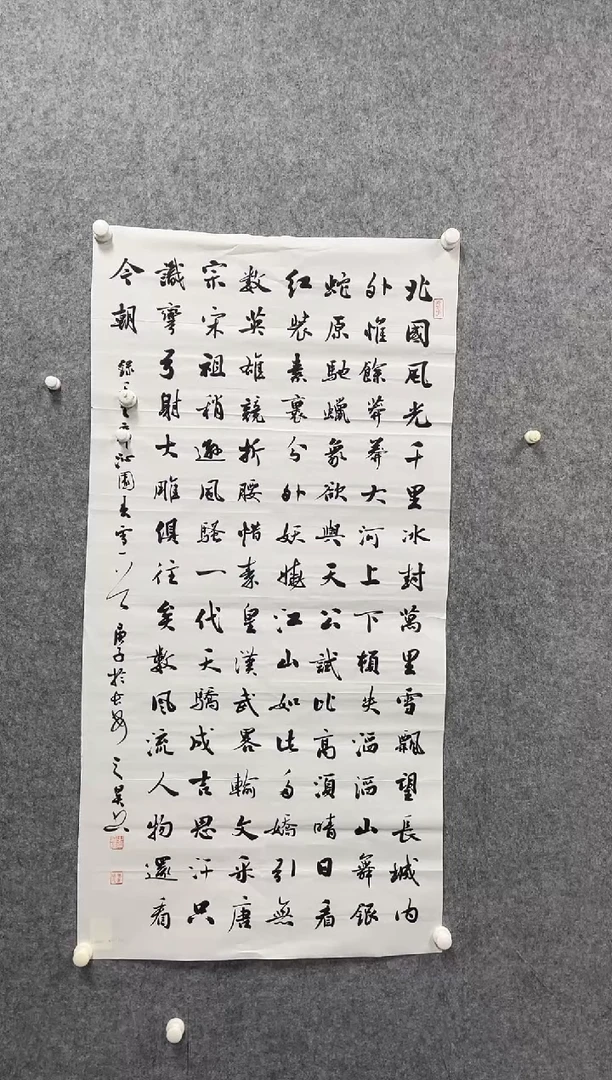 北國風光千里冰封萬里雪飄望長城内
外惟餘莽莽大河上下頓失滔滔山舞銀
蛇原馳蠟象欲與天公試比高須晴日看
紅裝素裹分外妖嬈江山如此多嬌引無
數英雄競折腰惜秦皇漢武畧輸文采唐
宗宋祖稍遜風騷一代天驕成吉思汗只
識彎弓射大雕俱往矣數風流人物還看
今朝
錄毛主席沁園春雪一首 庚子於